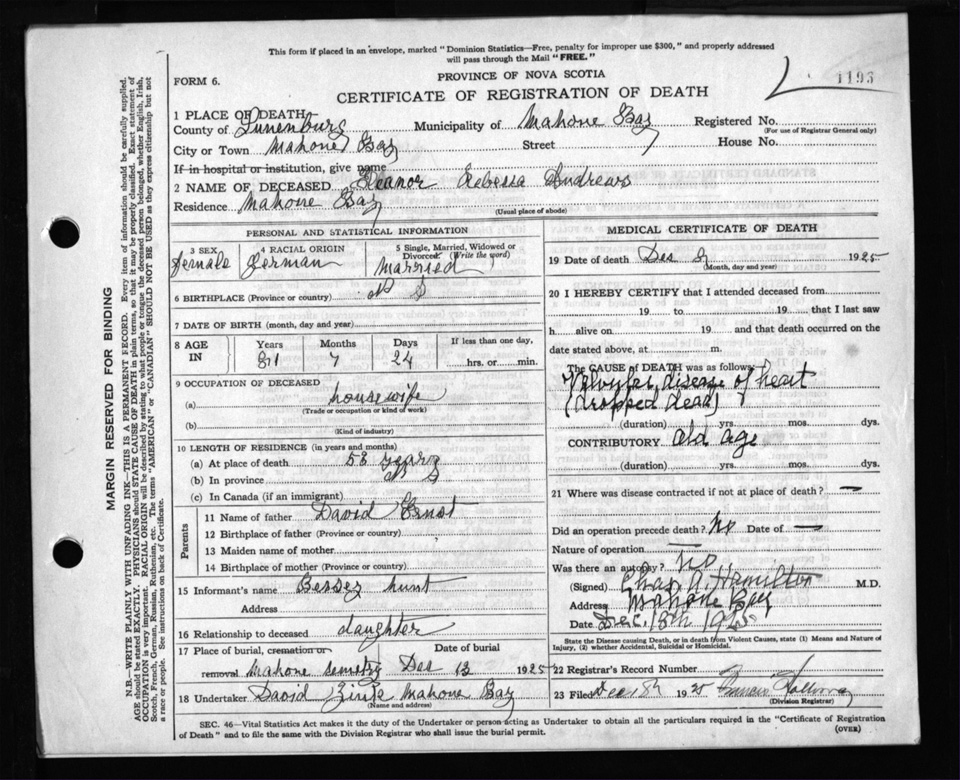 This form if placed in an envelope, marked "Dominion Statistics—Free, penalty for improper use $300," and properly addressed
will pass through the Mail "FREE."
FORM 6.
PROVINCE OF NOVA SCOTIA
1193
CERTIFICATE OF REGISTRATION OF DEATH
1 PLACE OF DEATH
County of Lunenburg Municipality of Mahone Bay Registered No.
(For use of Registrar General only)
City or Town Mahone Bay Street House No.
If in hospital or institution, give name
2 NAME OF DECEASED Eleanor Andrews
Residence Mahone Bay
(Usual place of abode)
PERSONAL AND STATISTICAL INFORMATION
3 SEX 4 RACIAL ORIGIN 5 Single, Married, Widowed or
Divorced (Write the word)
Female German Married
6 BIRTHPLACE (Province or country) N S
7 DATE OF BIRTH (month, day and year)
8 AGE IN Years Months Days If less than one day,
81 7 24 hrs. or min.
9 OCCUPATION OF DECEASED
(a) housewife
(Trade or occupation or kind of work)
(b)
(Kind of industry)
10 LENGTH OF RESIDENCE (in years and months)
(a) At place of death 58 years
(b) In province
(c) In Canada (if an immigrant)
Parents
11 Name of father David Ernst
12 Birthplace of father (Province or country)
13 Maiden name of mother
14 Birthplace of mother (Province or country)
15 Informant's name hunt
Address
16 Relationship to deceased daughter
17 Place of burial, cremation or Date of burial
removal Mahone 1925
18 Undertaker David Mahone Bay
(Name and address)
MEDICAL CERTIFICATE OF DEATH
19 Date of death 1925
(Month, day and year)
20 I HEREBY CERTIFY that I attended deceased from
19 to 19 that I last saw
h alive on 19 and that death occurred on the
date stated above, at m.
The CAUSE of DEATH was as follows:
Valvular disease of heart
(dropped dead)
(duration) yrs. mos. dys.
CONTRIBUTORY old age
(duration) yrs. mos. dys.
21 Where was disease contracted if not at place of death? —
Did an operation precede death? No Date of —
Nature of operation —
Was there an autopsy? No
(Signed) Chas. A. Hamilton M.D.
Address Mahone Bay
Date Dec. 1925
State the Disease causing Death, or in death from Violent Causes, state (1) Means and Nature of
Injury, (2) whether Accidental, Suicidal or Homicidal.
22 Registrar's Record Number
23 Filed Dec 1925 Francis
(Division Registrar)
SEC. 46—Vital Statistics Act makes it the duty of the Undertaker or person acting as Undertaker to obtain all the particulars required in the "Certificate of Registration
of Death" and to file the same with the Division Registrar who shall issue the burial permit.
(OVER)
MARGIN RESERVED FOR BINDING
N.B.—WRITE PLAINLY WITH UNFADING INK—THIS IS A PERMANENT RECORD. Every item of information should be carefully supplied.
AGE should be stated EXACTLY. PHYSICIANS should STATE CAUSE OF DEATH in plain terms, so that it may be properly classified. Exact statement of
OCCUPATION is very important. RACIAL ORIGIN will be described by stating to what people or tongue the deceased person belonged, whether English, Irish,
Scotch, French, German, Russian, Ruthenian, etc. The terms "AMERICAN" or "CANADIAN" SHOULD NOT BE USED as they express citizenship but not
a race or people. See instructions on back of Certificate.